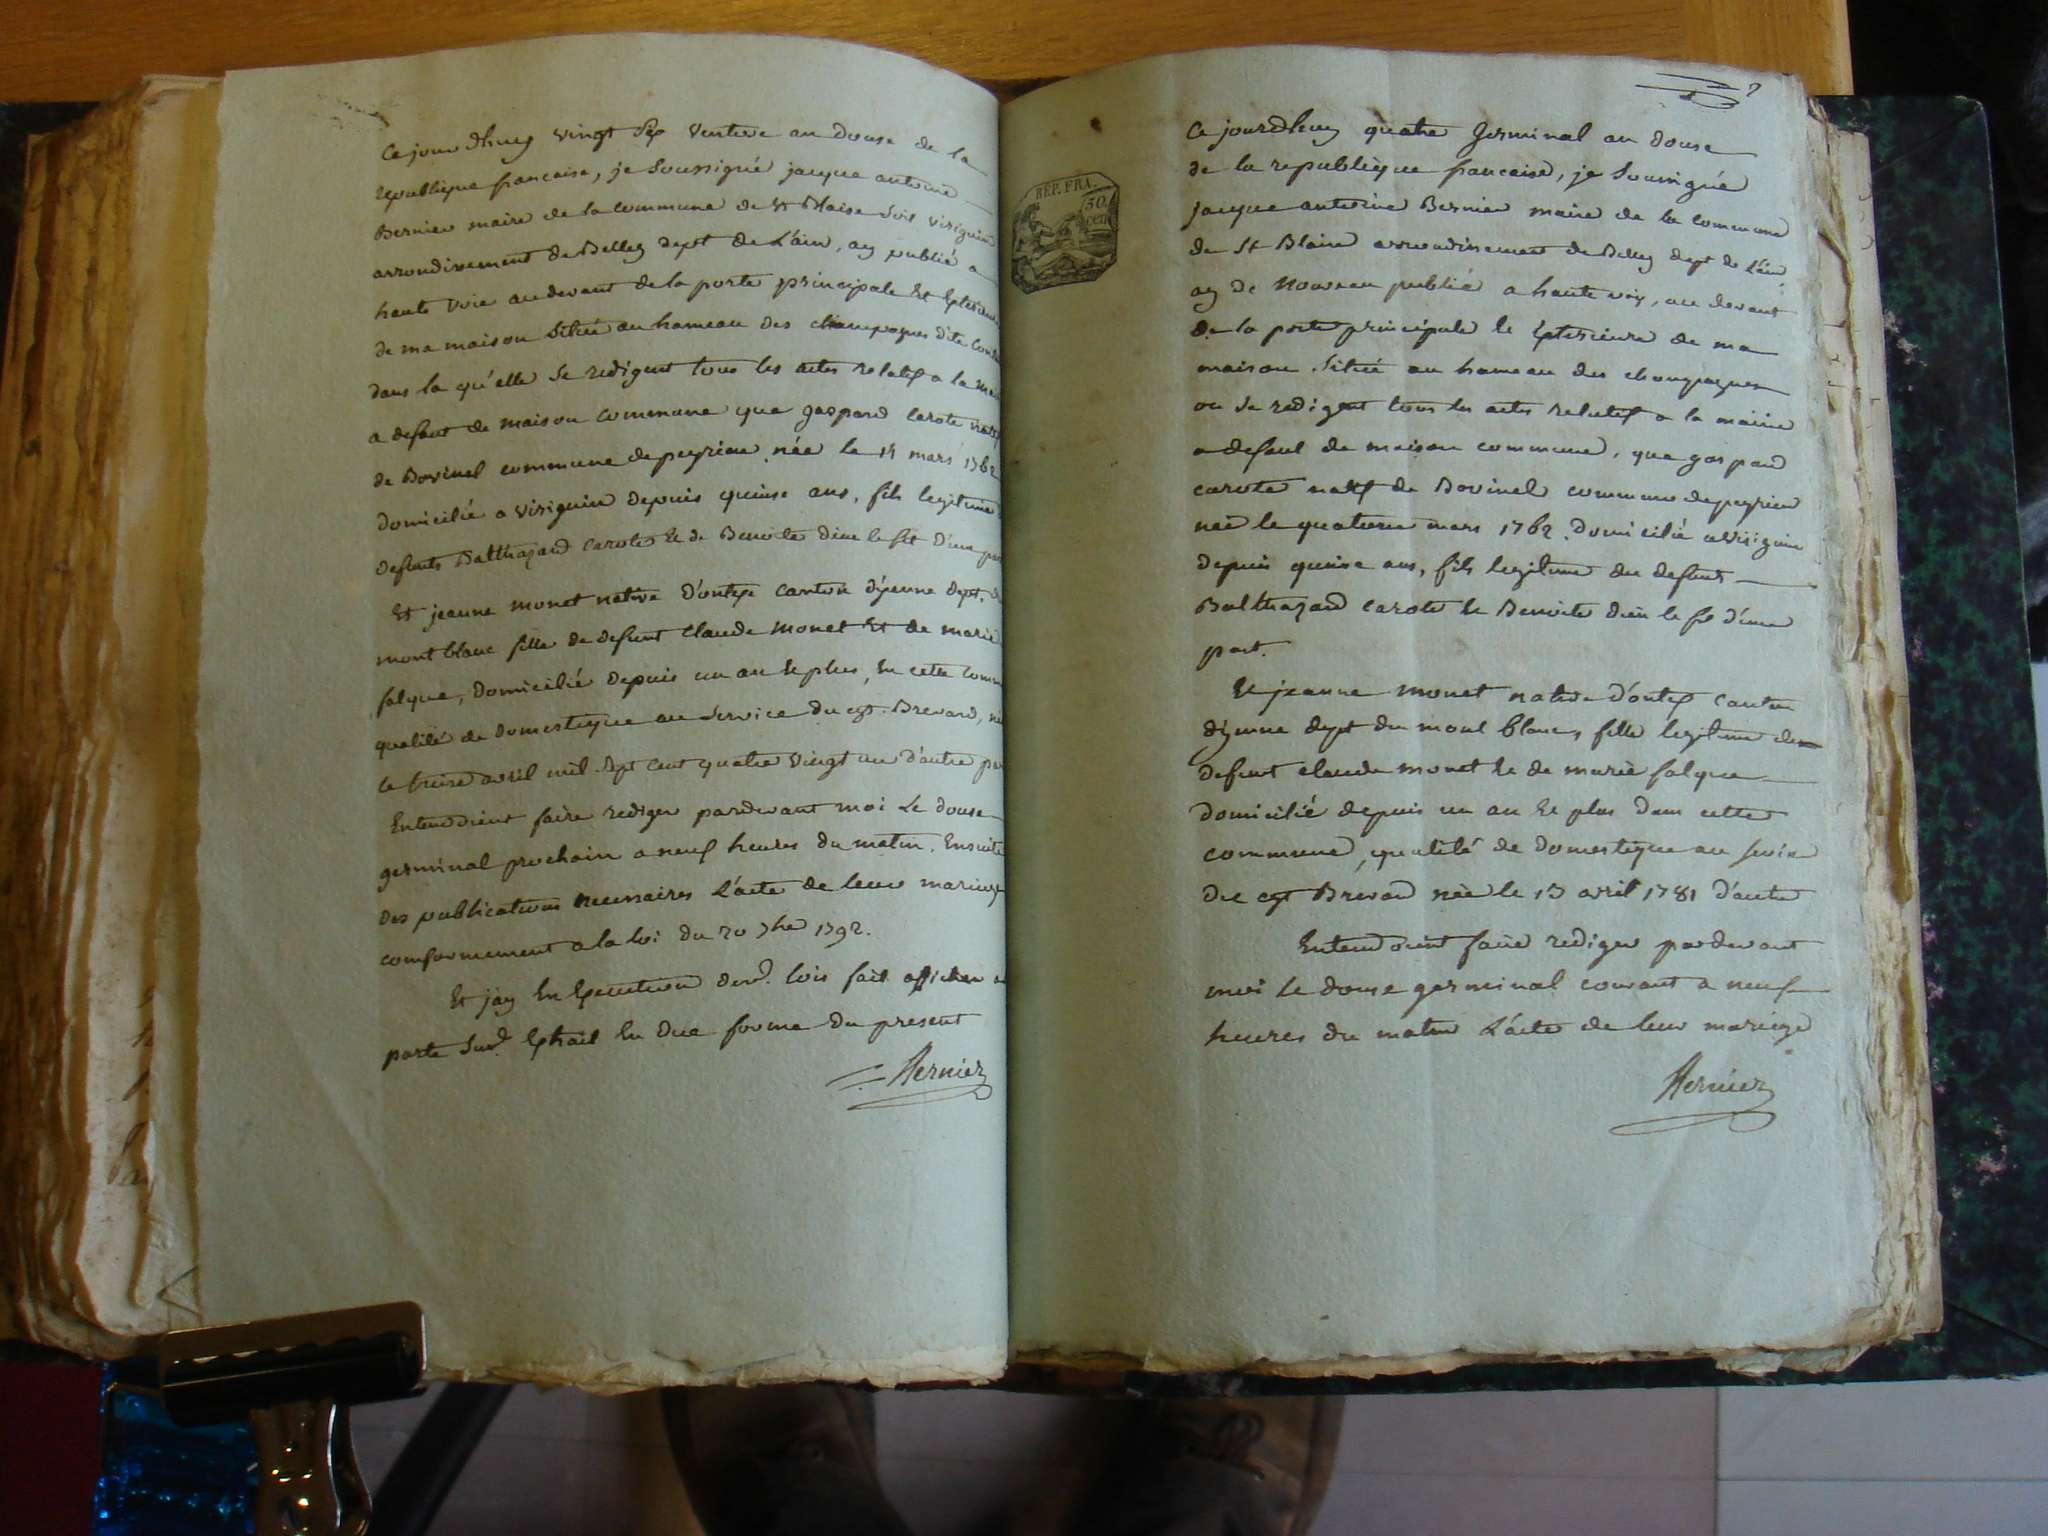 ce jourdhuy vingt six ventose an douse de la
republique francaise, je soussigné jacque antoine
Bernier maire de la commune de st Blaise soit virignin
arrondissement de Belley dept de L'ain, ay publié a
haute voie audevant de la porte principale et Exterieure
de ma maison situé au hameau des champagnes dite
dans la qu'elle se redigent tous les actes relatif a la
a defaut de maison commune que gaspard carote natif
de Bovinel commune de peyrieu née le 14 mars 1762
domicilié a virignin depuis quinse ans, fils legitime
defunts Balthazard carote et de Benoite dine le fet D'une part
Et jeanne monet native d'ontex canton d'yenne dept. du
mont blanc fille de defunt claude monet Et de marie
falque, domicilié depuis un an et plus, en cette
qualité de domestique au service du cyt. Brevard, née
le treise avril mil sept cent quatre vingt un d'autre part
Entendoient faire rediger pardevant moi Le douse
germinal prochain a neuf heures du matin. Ensuite
des publications necessaires L'acte de leur mariage
conformement a la loi du 20 7bre 1792.
Et j'ay En Execution desd. lois fait afficher a
porte susd. Extrait En due forme du present
Bernier
REP. FRA.
50
cen
ce jourdhuy quatre germinal an douse
de la republique francaise, je soussigné
jacque antoine Bernier maire de la commune
de St Blaise arrondissement de Belley dept de L'ain
ay de nouveau publié a haute voix, au devant
de la porte principale et Exterieure de ma
maison situé au hameau des champagnes
ou se redigent tous les actes relatif a la mairie
a defaut de maison commune, que gaspard
carote natif de Bovinel commune de peyrieu
née le quatorse mars 1762 domicilié a virignin
depuis quinse ans, fils legitime des defunts
Balthazard carote et Benoite dine le fet d'une
part.
Et jeanne monet native d'ontex canton
d'yenne dept du mont blanc, fille legitime de
defunt claude monet et de marie falque
domicilié depuis un an et plus dans cette
commune, qualité de domestique au service
du cyt Brevard née le 13 avril 1781 d'autre
Entendoient faire rediger pardevant
moi Le douse germinal courant a neuf
heures du matin L'acte de leur mariage
Bernier